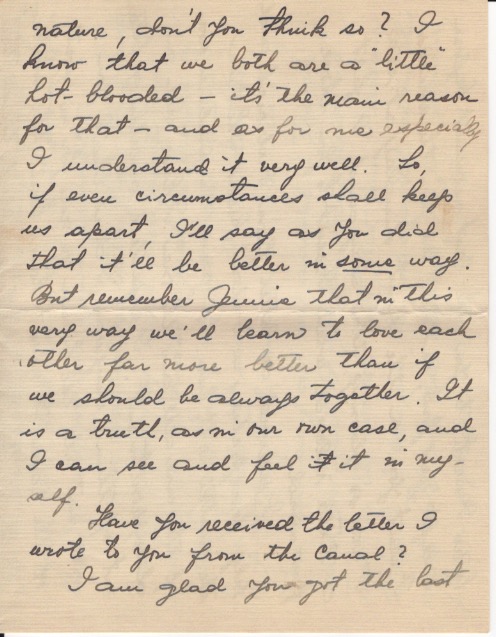 nature, don't you think so? I
know that we both are a "little"
hot-blooded - it's the main reason
for that - and as for me especially
I understand it very well. So,
if even circumstances shall keep
us apart, I'll say as you did
that it'll be better in some way.
But remember Jennie that in this
very way we'll learn to love each
other far more better than if
we should be always together. It
is a truth, as in our own case, and
I can see and feel it it in my-
self.
Have you received the letter I
wrote to you from the Canal?
I am glad you got the last